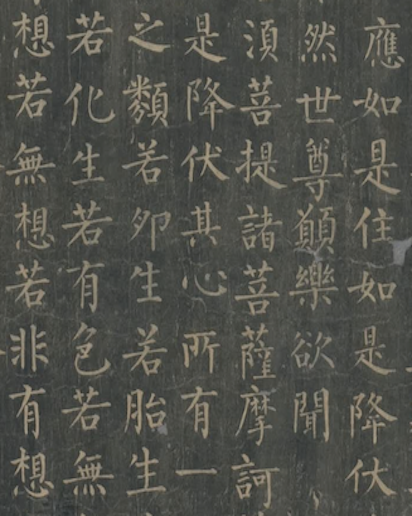 應如是住如是降伏
然世尊願樂欲聞
湏菩提諸菩薩摩訶
是降伏其心所有一
之類若卵生若胎生
若化生若有色若無
想若無想若非有想